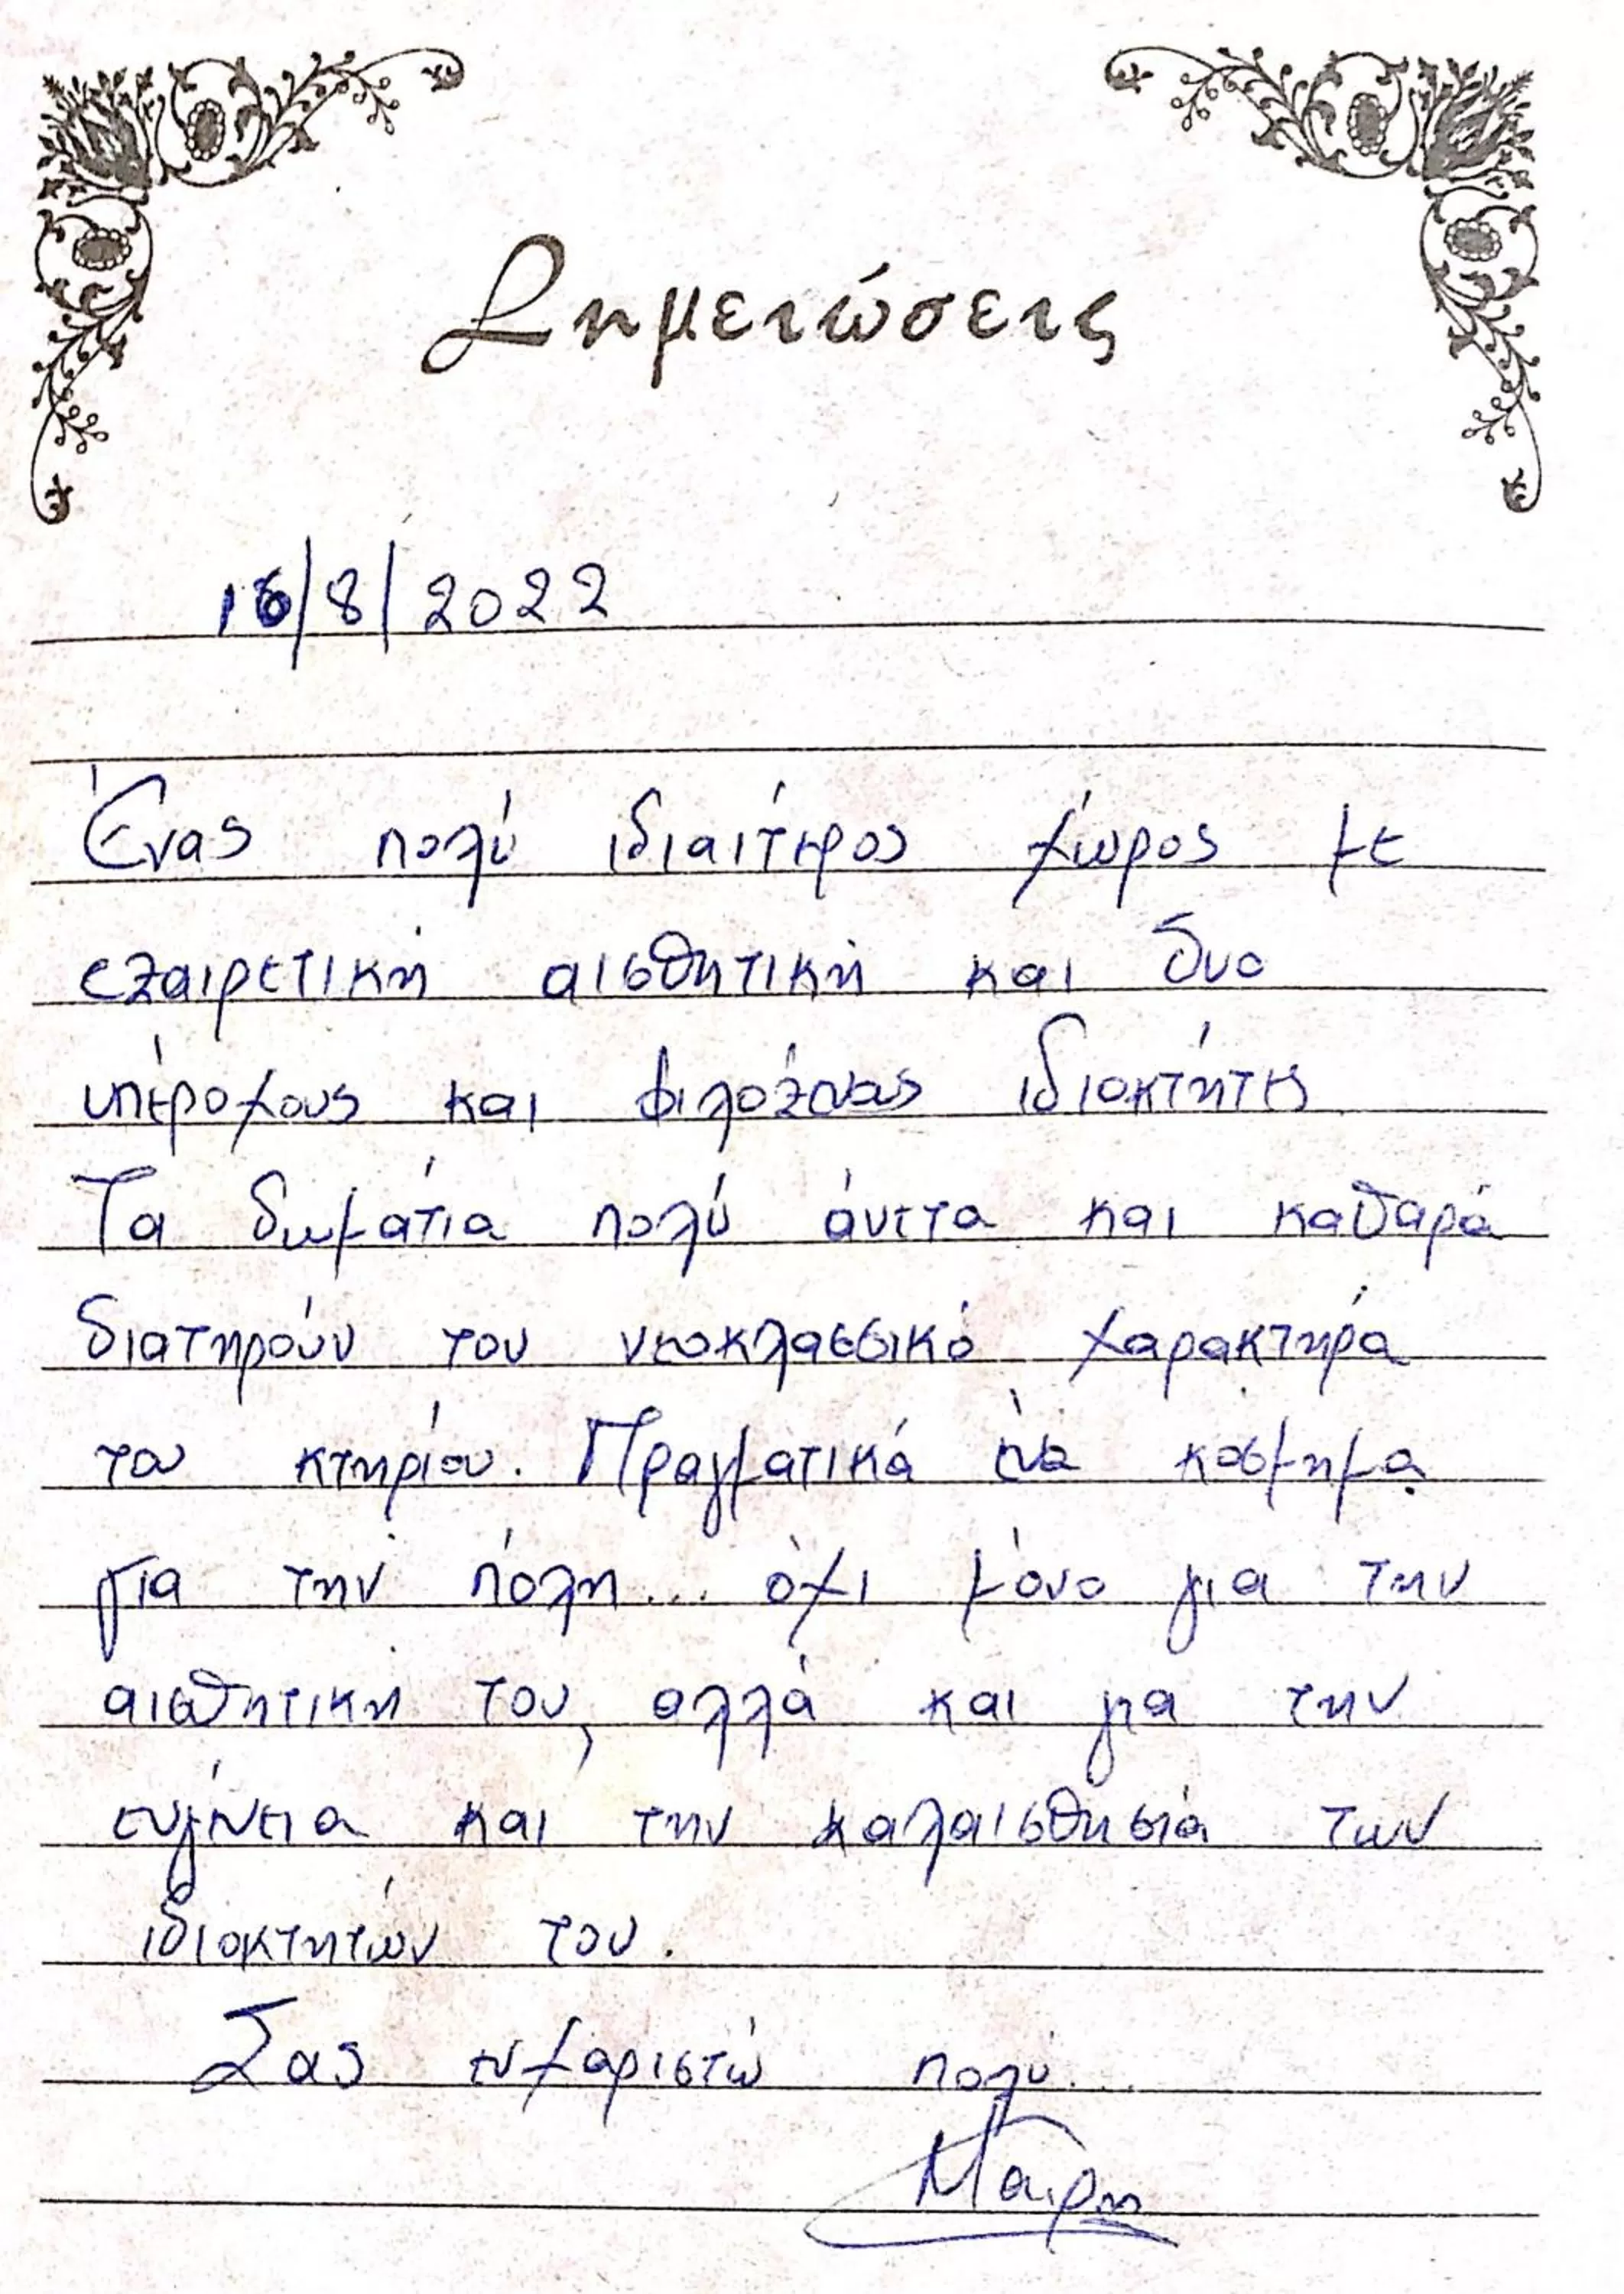 Σημειώσεις
16/8/2022
Ένας πολύ ιδιαίτερος χώρος με
εξαιρετική αισθητική και δυο
υπέροχους και φιλόξενους ιδιοκτήτες
Τα δωμάτια πολύ άνετα και καθαρά
διατηρούν τον νεοκλασσικό χαρακτηρά
του κτηρίου. Πραγματικά ένα κόσμημα
για την πόλη... όχι μόνο για την
αισθητική του, αλλά και για την
ευγένεια και την καλαισθησιά των
ιδιοκτητών του.
Σας ευχαριστώ πολύ...
Μαίρη